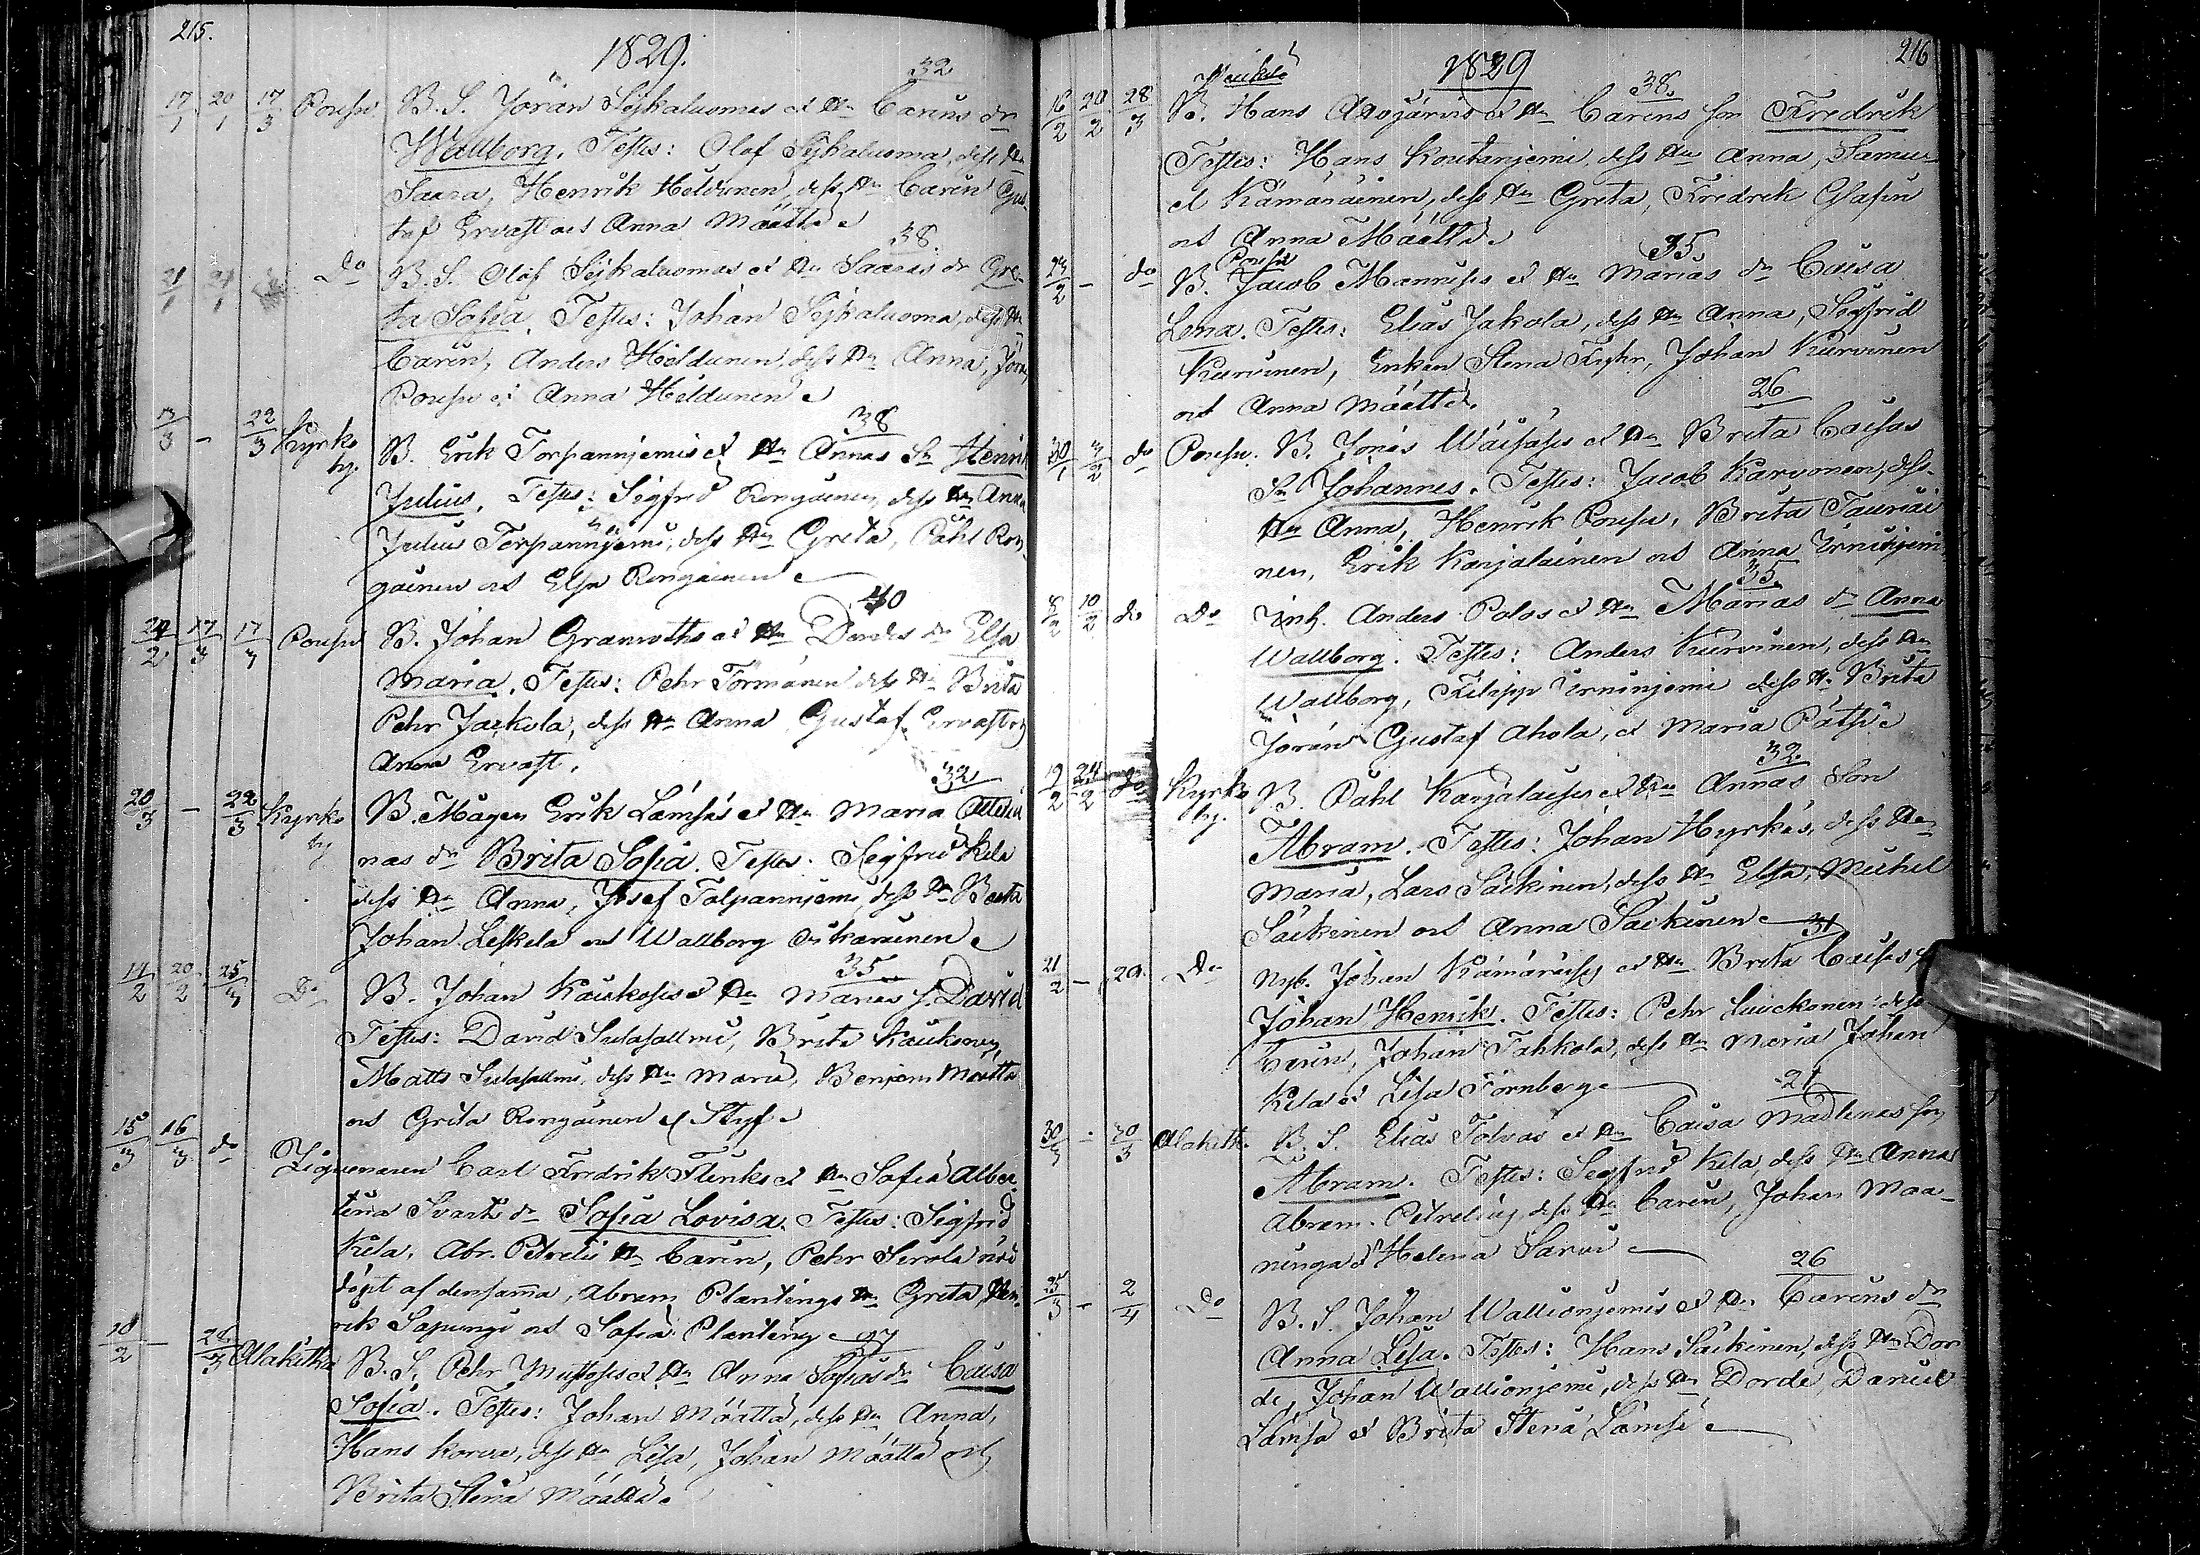 215.
1829.
32
17/1 20/1 17/3 Posusu B. S. Jöran Sejkaluomas et Hu Carins dr
Wallborg. Testes: Olof Sejkaluoma, dess Hu
Saara, Henrik Heldunen, dess Hu Carin Gus
taf Ervast och Anna Määttä
38.
21/1 24/1 Do B. S. Olof Sejkaluomas et Hu Saaras dr Gre
ta Sofia. Testes: Johan Sejkaluoma, dess Hu
Carin, Anders Heldunen, dess Hu Anna, Jöran
Posusu et Anna Heldunen
38
13/3 - 22/3 Kyrko B. Erik Torpannjemis et Hu Annas Sn Henrik
by. Julius. Testes: Sigfrid Rengäinen, dess Hu Anna
Julius Torpannjemi, dess Hu Greta, Påhl Ron
gäinen och Elsa Rongäinen
40
24/2 17/3 17/3 Posusu B. Johan Granroths et Hu Dordes dr Elsa
Maria. Testes: Pehr Törmänen dess Hu Brita
Pehr Jaakola, dess Hu Anna Gustaf Ervast och
Anna Ervast.
32
20/3 - 22/3 Kyrko B. Mågen Erik Lämsäs et Hu Maria
by nas dr Brita Sofia. Testes: Sigfrid Kela
dess Hu Anna, Josef Talpannjemi, dess Hu Beata
Johan Leskela och Wallborg
35
14/2 20/2 25/3 Do B. Johan Kaukosis et Hu Marias s. David
Testes: David Sulasallmi, Brita Kaukonen,
Matts Sulasallmi, dess Hu Maria, Benjam Määttä
och Greta Rongäinen
15/3 16/3 do Ligueuren Carl Fredrik Flinks et Hu Sofia Alber
tina Svart dr Sofia Lovisa. Testes: Sigfrid
Kela, Abr. Petrelii Hu Carin, Pehr Serola
döpt af densama, Abram Plantings Hu Greta, Hen
rik Sapungi och Sofia Planting
27
18/2 - 26/3 Alakitka B. S. Pehr Mustosis et Hu Anna Sofias dr Caisa
Sofia. Testes: Johan Määttä, dess Hu Anna,
Hans Korva, dess Hu Lisa, Johan Määttä och
Brita Stena Määttä
216
1829
38.
16/2 20/2 28/3 B. Hans Aesojärvis et Hu Carins son Fredrik
Testes: Hans Koutanjemi, dess Hu Anna, Samu
el Kämäräinen, dess Hu Greta, Fredrik Glasin
och Anna Määttä
35
Posusu
23/2 - do B. Jacob Mannises et Hu Marias dr Caisa
Lena. Testes: Elias Jakola, dess Hu Anna, Sigfrid
Kurvinen, Enkan Stena Fyhr, Johan Kurvinen
och Anna Määttä.
26
30/1 3/2 do Posusu. B. Jonas Wäisäses et Hu Brita Caisas
Sn Johannes. Testes: Jacob Karvonen, dess
Hu Anna, Henrik Posusu, Brita Tauriai
nen, Erik Karjalainen och Anna Erninjemi
35.
8/2 10/2 do Do Inh. Anders Polos et Hu Marias dr Anna
Wallborg. Testes: Anders Kurvinen, dess Hu
Wallborg, Filipp Erninjemi dess Hu Brita
Jöran Gustaf Ahola, et Maria Pätsi
32
19/2 24/2 do Kyrko B. Påhl Karjalaises et Hu Annas Son
by. Abram. Testes: Johan Hyrkäs, dess Hu
Maria, Lars Säckinen, dess Hu Elsa, Michel
Säckinen och Anna Säckinen
31
21/2 - 29. Do Nyb. Johan Kämäräises et Hu Brita Caisas s
Johan Henrik. Testes: Pehr Luuckonen dess
Carin, Johan Tahkola, dess Hu Maria Johan
Kela et Lisa Törnberg
21
30/3 - 30/3 Alakitk. B. S. Elias Tolvas et Hu Caisa Madlenas son
Abram. Testes: Segfrid Kela, dess Hu Anna
Abram Petrelius, dess Hu Carin, Johan Maa
ninga et Helena Sarvi
26
25/3 - 2/4 Do B. S. Johan Wallionjemis et Hu Carins dr
Anna Lisa. Testes: Hans Säckinen, dess Hu Dor
de, Johan Wallionjemi, dess Hu Dorde, Daniel
Lämsä et Brita Stena Lämsä